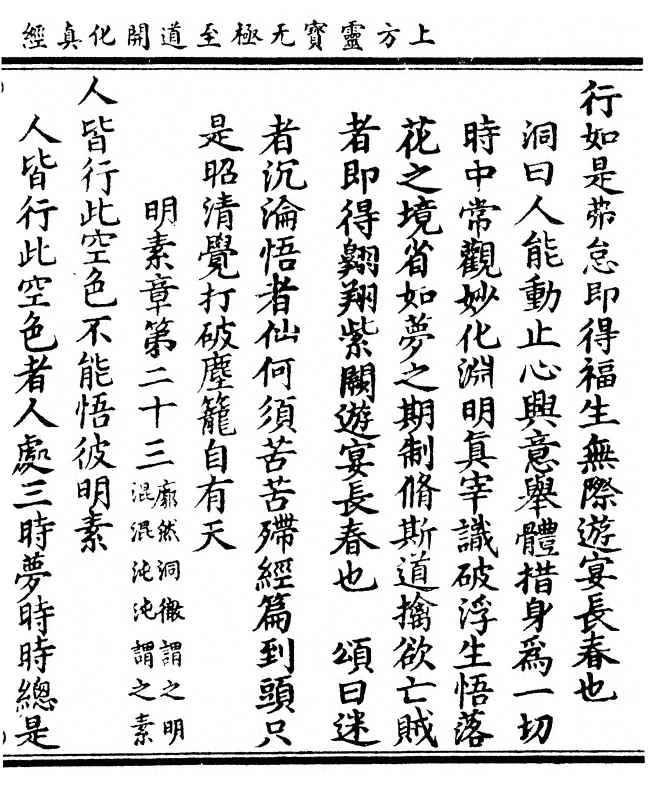 上方靈寶无極至道開化真經
行如是茀怠即得福生無際遊宴長春也
洞曰人能動止心興意舉體措身為一切
時中常觀妙化淵明真宰識破浮生悟落
花之境省如夢之期制脩斯道擒欲亡賊
者即得翺翔紫闕遊宴長春也 頌曰迷
者沉淪悟者仙何須苦苦殢經篇到頭只
是昭清覺打破塵籠自有天
明素章第二十三 廓然洞徹謂之明
混混沌沌謂之素
人皆行此空色不能悟彼明素
人皆行此空色者人處三時夢時時總是